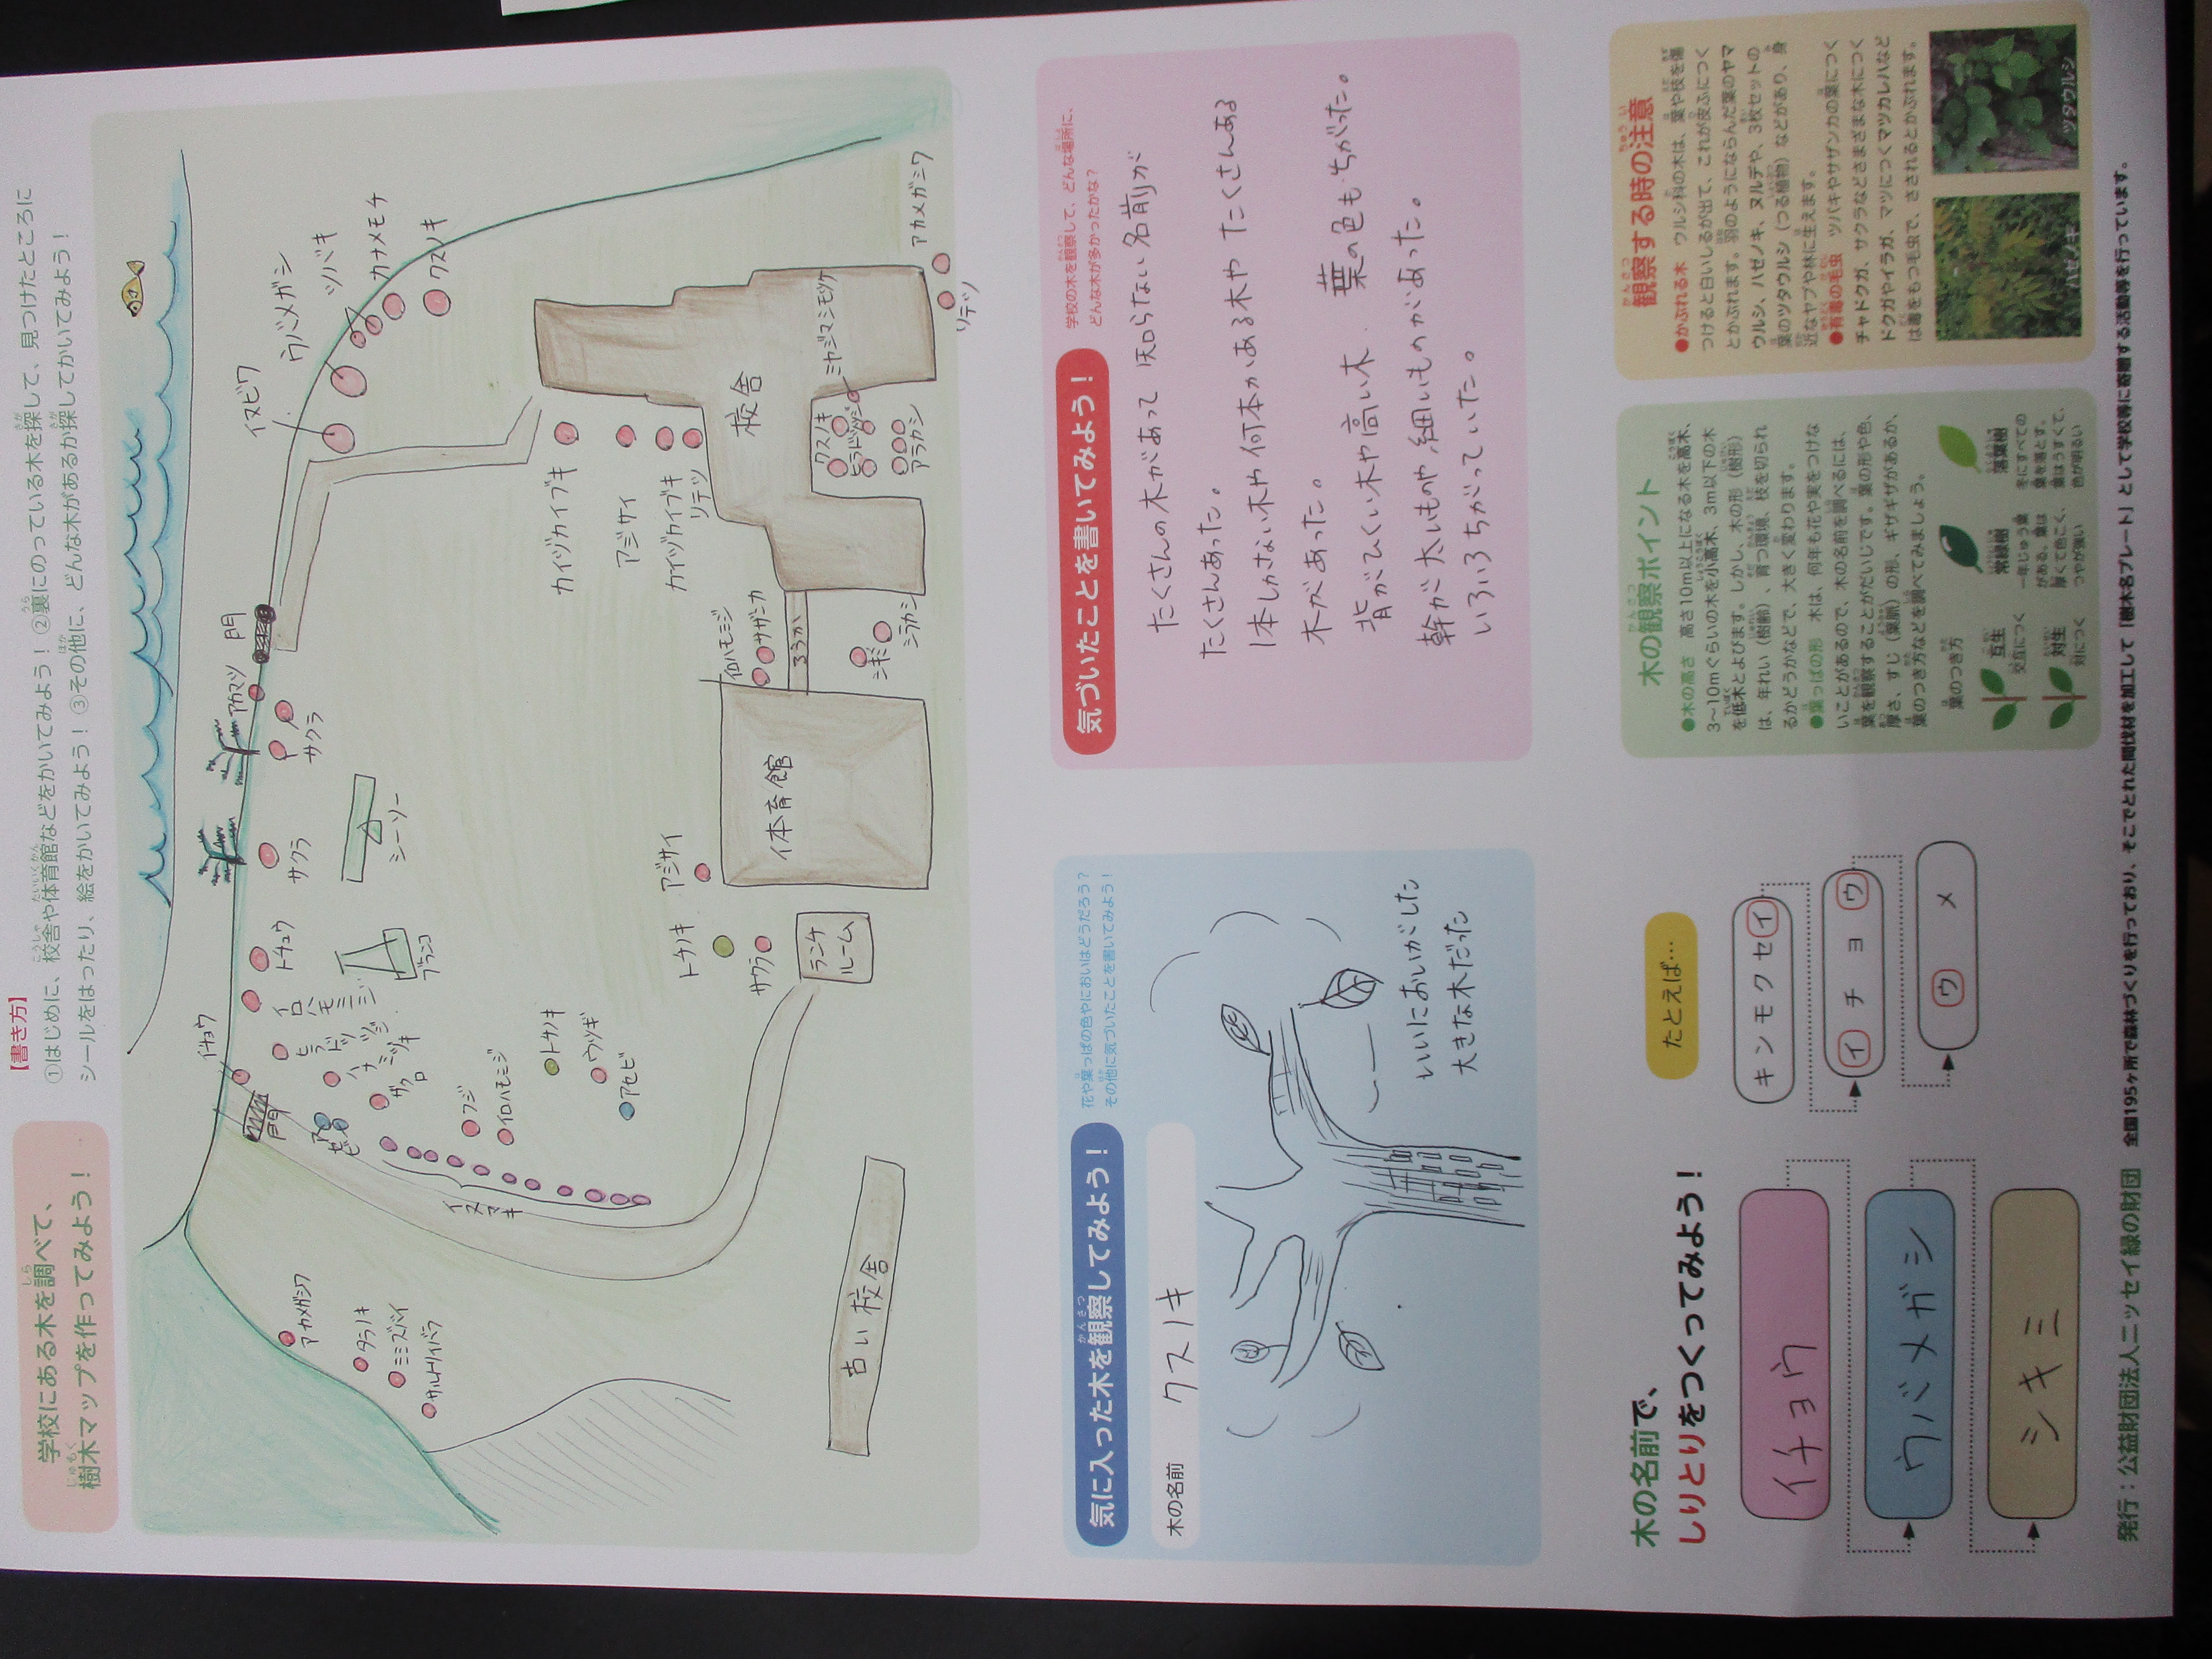 学校にある木を調べて、
樹木マップを作ってみよう！
【書き方】
①はじめに、校舎や体育館などをかいてみよう！ ②裏にのっている木を探して、見つけたところに
シールをはったり、絵をかいてみよう！ ③その他に、どんな木があるか探してかいてみよう！
イチョウ
門
トチュウ
サクラ
サクラ
アカマツ
門
イヌビワ
ウバメガシ
ツバキ
カナメモチ
クスノキ
イロハモミジ
ブランコ
シーソー
フジ
イロハモミジ
トチノキ
ウツギ
アセビ
イヌマキ
アカメガシワ
タラノキ
ミミズバイ
サルトリイバラ
古い校舎
トチノキ
サクラ
アジサイ
ランチ
ルーム
体育館
イロハモミジ
サザンカ
ろうか
シキミ
シラカシ
カイヅカイブキ
アジサイ
カイヅカイブキ
校舎
クスノキ
アラカシ
アカメガシワ
気に入った木を観察してみよう！
花や葉っぱの色やにおいはどうだろう？
その他に気づいたことを書いてみよう！
木の名前
クスノキ
いいにおいがした
大きな木だった
気づいたことを書いてみよう！
学校の木を観察して、どんな場所に、
どんな木が多かったかな？
たくさんの木があって 知らない名前が
たくさんあった。
1本しかない木や何本かある木や たくさんある
木があった。
背がひくい木や高い木 葉の色もちがった。
幹が太いものや、細いものがあった。
いろいろちがっていた。
木の名前で、
しりとりをつくってみよう！
イチョウ
ウバメガシ
シキミ
たとえば…
キンモクセイ
イチョウ
ウメ
木の観察ポイント
●木の高さ 高さ10m以上になる木を高木、
3〜10mぐらいの木を小高木、3m以下の木
を低木とよびます。しかし、木の形（樹形）
は、年れい（樹齢）、育つ環境、枝を切られ
るかどうかなどで、大きく変わります。
●葉っぱの形 木は、何年も花や実をつけな
いことがあるので、木の名前を調べるには、
葉を観察することがだいじです。葉の形や色、
厚さ、すじ（葉脈）の形、ギザギザがあるか、
葉のつき方などを調べてみましょう。
葉のつき方
互生
交互につく
対生
対につく
常緑樹
一年じゅう葉
がある。葉は
厚くて色こく、
つやが強い
落葉樹
冬にすべての
葉を落とす。
葉はうすくて、
色が明るい
観察する時の注意
●かぶれる木 ウルシ科の木は、葉や枝を傷
つけると白いしるが出て、これが皮ふにつく
とかぶれます。羽のようにならんだ葉のヤマ
ウルシ、ハゼノキ、ヌルデや、3枚セットの
葉のツタウルシ（つる植物）などがあり、身
近なヤブや林に生えます。
●有毒の毛虫 ツバキやサザンカの葉につく
チャドクガ、サクラなどさまざまな木につく
ドクガやイラガ、マツにつくマツカレハなど
は毒をもつ毛虫で、さされるとかぶれます。
ハゼノキ
ツタウルシ
発行：公益財団法人ニッセイ緑の財団 全国195ヶ所で森林づくりを行っており、そこでとれた間伐材を加工して「樹木名プレート」として学校等に寄贈する活動等を行っています。